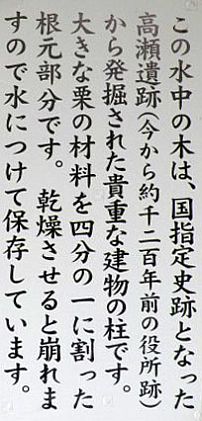 この水中の木は、国指定史跡となった
高瀬遺跡(今から約千二百年前の役所跡)
から発掘された貴重な建物の柱です。
大きな栗の材料を四分の一に割った
根元部分です。 乾燥させると崩れま
すので水につけて保存しています。